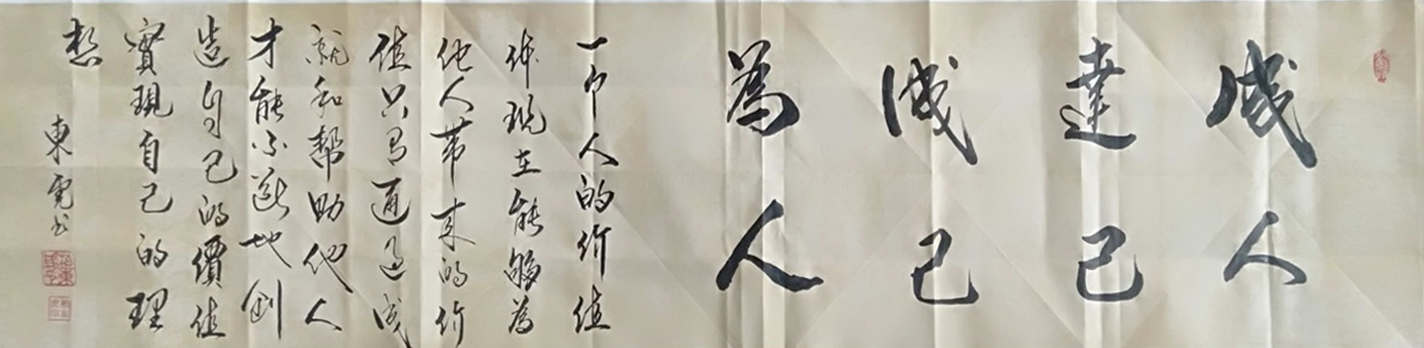 成人
達己
成己
為人
一个人的价值
体现在能够为
他人带来的价
值只有通过成
就和帮助他人
才能不断地创
造自己的價值
實現自己的理
想
東 书